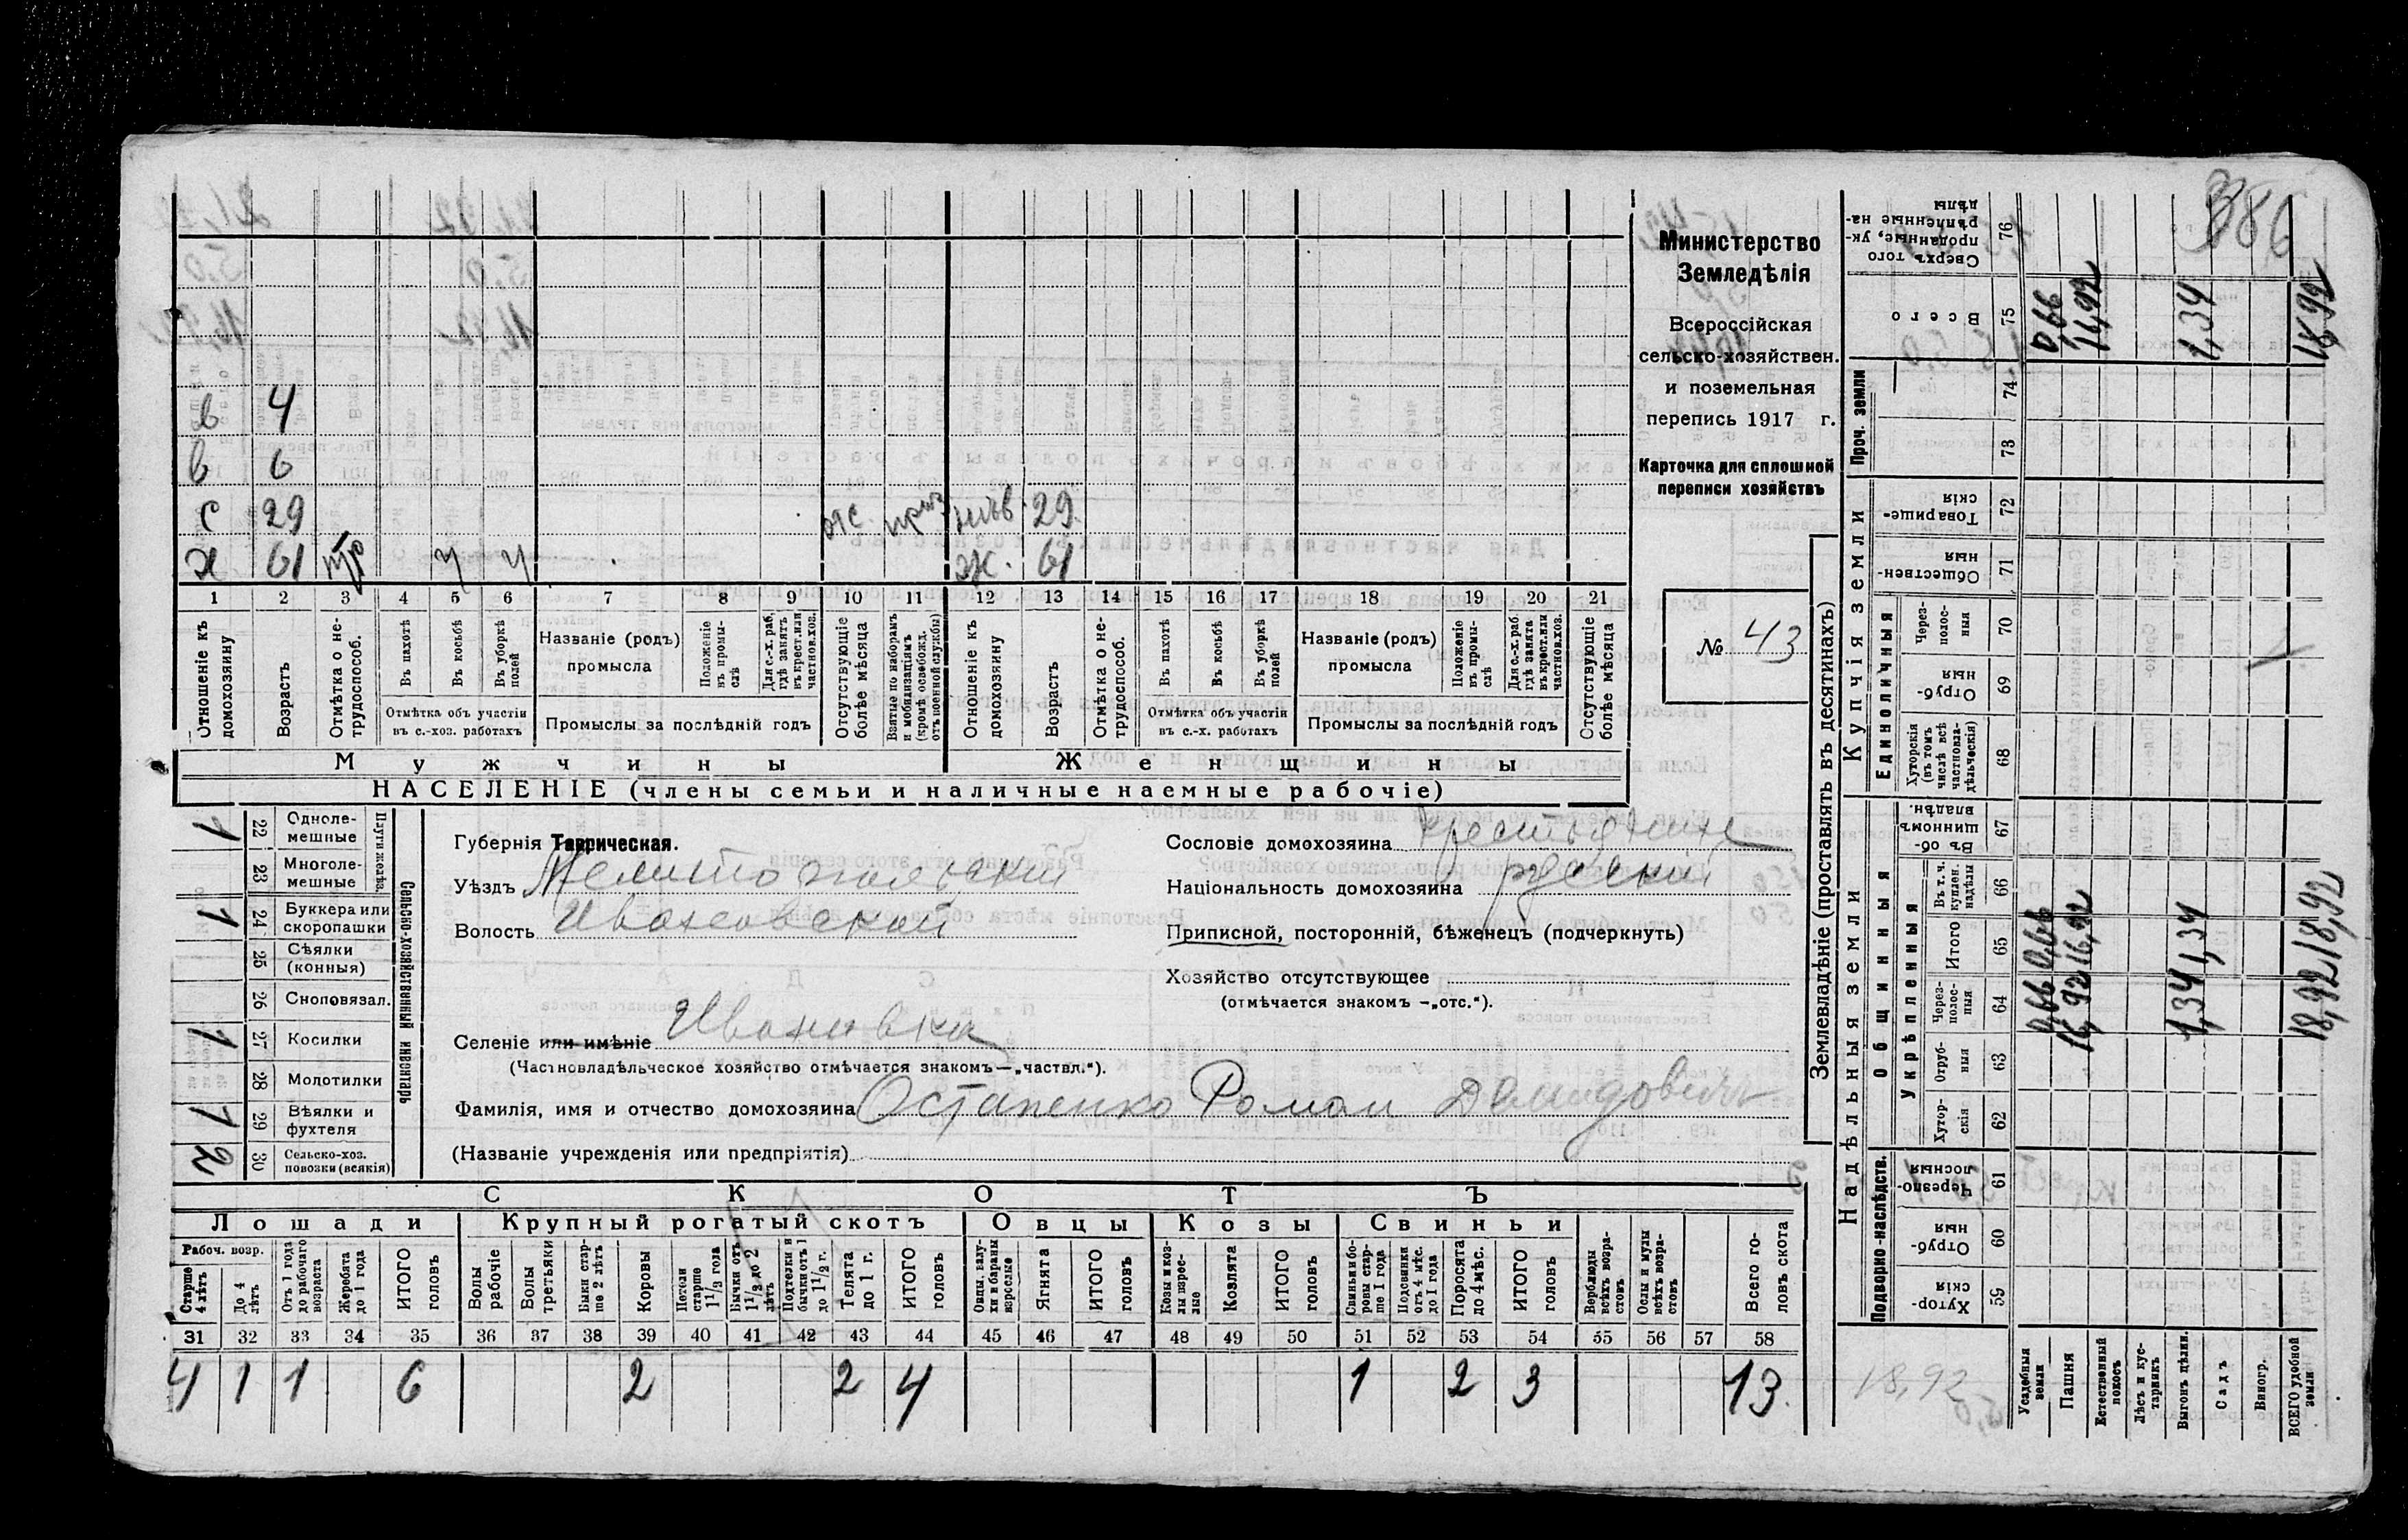 386
в 4
в 6
с 29 отс. приз нев. 29
х 61 нтр ч ч ж. 61
1 2 3 4 5 6 7 8 9 10 11 12 13 14 15 16 17 18 19 20 21
Отношеніе къ домохозяину
Возрастъ
Отмѣтка о нетрудоспособ.
Въ пахотѣ
Въ косьбѣ
Въ уборкѣ полей
Отмѣтка объ участіи въ с.-хоз. работахъ
Названіе (родъ) промысла
Положеніе въ промыслѣ
Для с.-х. раб., гдѣ занятъ въ крест. или частнов. хоз.
Промыслы за послѣдній годъ
Отсутствующіе болѣе мѣсяца
Взятые по наборамъ и мобилизаціямъ (кромѣ освобожд. отъ военной службы)
Отношеніе къ домохозяину
Возрастъ
Отмѣтка о нетрудоспособ.
Въ пахотѣ
Въ косьбѣ
Въ уборкѣ полей
Отмѣтка объ участіи въ с.-х. работахъ
Названіе (родъ) промысла
Положеніе въ промыслѣ
Для с.-х. раб. гдѣ занята въ крест. или частнов. хоз.
Промыслы за послѣдній годъ
Отсутствующіе болѣе мѣсяца
Мужчины
Женщины
НАСЕЛЕНІЕ (члены семьи и наличные наемные рабочіе)
Министерство
Земледѣлія
Всероссійская
сельско-хозяйствен.
и поземельная
перепись 1917 г.
Карточка для сплошной
переписи хозяйствъ
№ 43
Сельско-хозяйственный инвентарь
Плуги желѣз.
1 22 Одноле-мешные
23 Многоле-мешные
1 24 Буккера или скоропашки
25 Сѣялки (конныя)
26 Сноповязал.
1 27 Косилки
28 Молотилки
1 29 Вѣялки и фухтеля
2 30 Сельско-хоз. повозки (всякія)
Губернія Таврическая.
Уѣздъ Мелитопольский
Волость Ивановский
Сословіе домохозяина крестьянин
Національность домохозяина русский
Приписной, посторонній, бѣженецъ (подчеркнуть)
Хозяйство отсутствующее
(отмѣчается знакомъ —„отс.“).
Селеніе или имѣніе Ивановка
(Частновладѣльческое хозяйство отмѣчается знакомъ—„частвл.“).
Фамилія, имя и отчество домохозяина Остапенко Роман Демидович
(Названіе учрежденія или предпріятія)
СКОТЪ
Лошади Крупный рогатый скотъ Овцы Козы Свиньи
Рабоч. возр.
Старше 4 лѣтъ
До 4 лѣтъ
Отъ 1 года до рабочаго возраста
Жеребята до 1 года
ИТОГО головъ
Волы рабочіе
Волы третьяки
Быки старше 2 лѣтъ
Коровы
Нетели старше 1½ года
Бычки отъ 1½ до 2 лѣтъ
Подтелки и бычки отъ 1 до 1½ г.
Телята до 1 г.
ИТОГО головъ
Овцы, валухи и бараны взрослые
Ягнята
ИТОГО головъ
Козы и козлы взрослые
Козлята
ИТОГО головъ
Свиньи и боровы старше 1 года
Подсвинки отъ 4 мѣс. до 1 года
Поросята до 4 мѣс.
ИТОГО головъ
Верблюды всѣхъ возрастовъ
Ослы и мулы всѣхъ возрастовъ
Всего головъ скота
31 32 33 34 35 36 37 38 39 40 41 42 43 44 45 46 47 48 49 50 51 52 53 54 55 56 57 58
4 1 1 6 2 2 4 1 2 3 13.
Землевладѣніе (проставлять въ десятинахъ)
Надѣльныя земли
Купчія земли
Проч. земли
Подворно-наслѣдств.
Общинныя
Укрѣпленныя
Единоличныя
Хуторскія 59
Отрубныя 60
Черезполосныя 61
Хуторскія 62
Отрубныя 63
Черезполосныя 64
Итого 65
Въ т. ч. куплен. надѣлы 66
Въ общинномъ владѣн. 67
Хуторскія (въ томъ числѣ всѣ частновладѣльческія) 68
Отрубныя 69
Черезполосныя 70
Общественныя 71
Товарищескія 72
73
74
Всего 75
Сверхъ того проданные, укрѣпленные надѣлы 76
Усадебныя земли 0,66 0,66 0,66
Пашня 16,92 16,92 16,92
Естественный покосъ
Лѣсъ и кустарникъ
Выгонъ цѣлин. 1,34 1,34 1,34
Садъ
Виногр.
ВСЕГО удобной земли 18,92 18,92 18,92
18,92